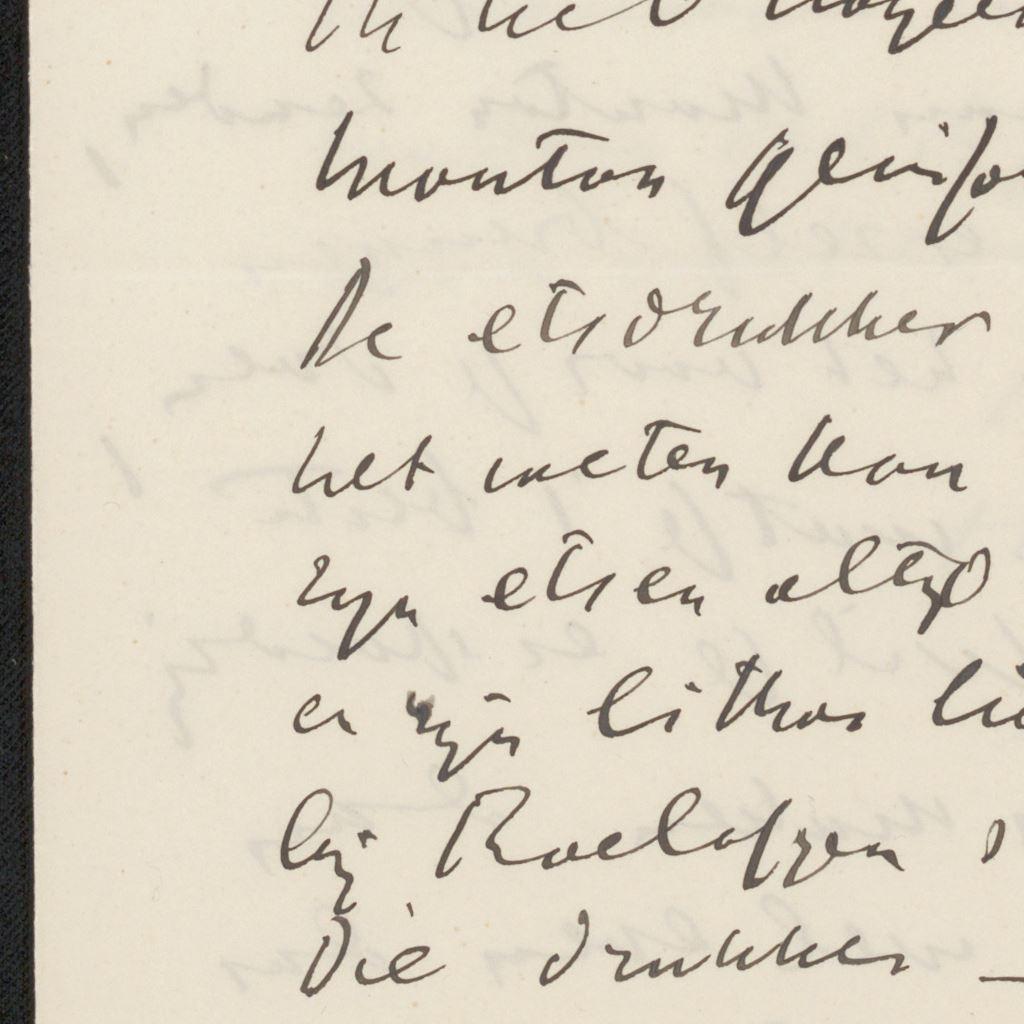 het
Mouton
De etsdrukker
het weten kan
zyn etsen altyd
en zijn lithos
bij Roelofzen
die drukker —